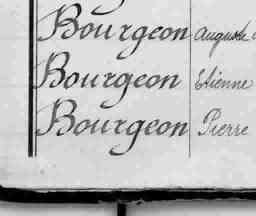 Bourgeon Auguste
Bourgeon Etienne
Bourgeon Pierre